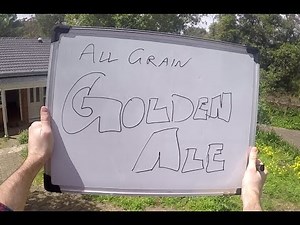 ALL GRAIN
GOLDEN
ALE